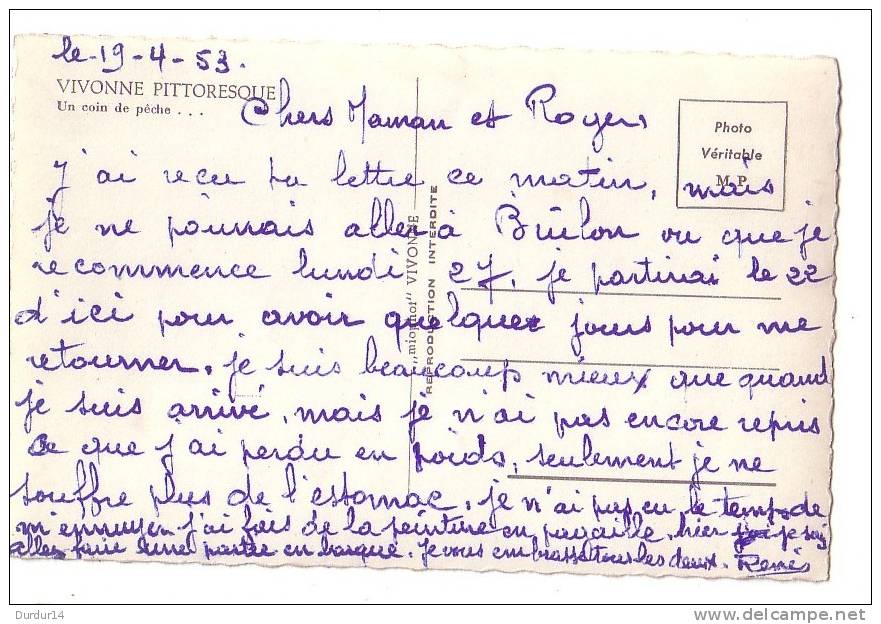 le-19-4-53.
VIVONNE PITTORESQUE
Un coin de pêche . . .
Chers Maman et Roger
Photo
Véritable
M. P.
J'ai recu ta lettre ce matin, mais
je ne pourrais aller à Brûlon vu que je
recommence lundi 27, je partirai le 22
d'ici pour avoir quelques jours pour me
retourner. je suis beaucoup mieux que quand
je suis arrivé, mais je n'ai pas encore repris
ce que j'ai perdu en poids, seulement je ne
souffre plus de l'estomac, je n'ai pas eu le temps de
m'ennuyer j'ai fais de la peinture en pagaille, hier je suis
aller faire une partie en barque. Je vous embrasse tous les deux. René
"miognot" VIVONNE
REPRODUCTION INTERDITE
Durdur14
www.delcampe.net